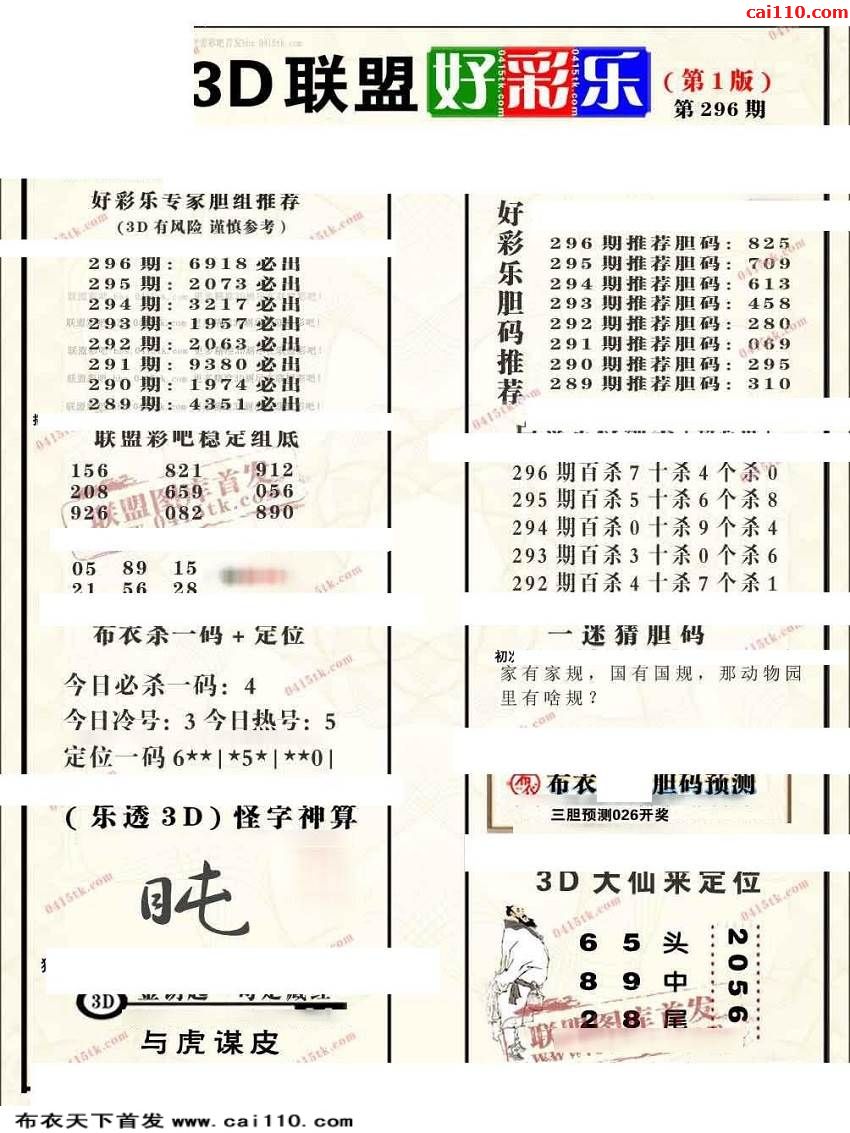 cai110.com
3D联盟好彩乐
(第1版)
第296期
好彩乐专家胆组推荐
(3D有风险 谨慎参考)
296期: 6918必出
295期: 2073必出
294期: 3217必出
293期: 1957必出
292期: 2063必出
291期: 9380必出
290期: 1974必出
289期: 4351必出
联盟彩吧稳定组底
156 821 912
208 659 056
926 082 890
05 89 15
21 56 28
布衣杀一码+定位
今日必杀一码: 4
今日冷号: 3 今日热号: 5
定位一码 6**|*5*|**0|
(乐透3D) 怪字神算
3D
与虎谋皮
好彩乐胆码推荐
296期推荐胆码: 825
295期推荐胆码: 709
294期推荐胆码: 613
293期推荐胆码: 458
292期推荐胆码: 280
291期推荐胆码: 069
290期推荐胆码: 295
289期推荐胆码: 310
296期百杀7十杀4个杀0
295期百杀5十杀6个杀8
294期百杀0十杀9个杀4
293期百杀3十杀0个杀6
292期百杀4十杀7个杀1
一迷猜胆码
家有家规，国有国规，那动物园
里有啥规？
布衣 胆码预测
三胆预测026开奖
3D大仙来定位
6 5 头
8 9 中
2 8 尾
2056
联盟图库首发
0415tk.com
布衣天下首发 www.cai110.com